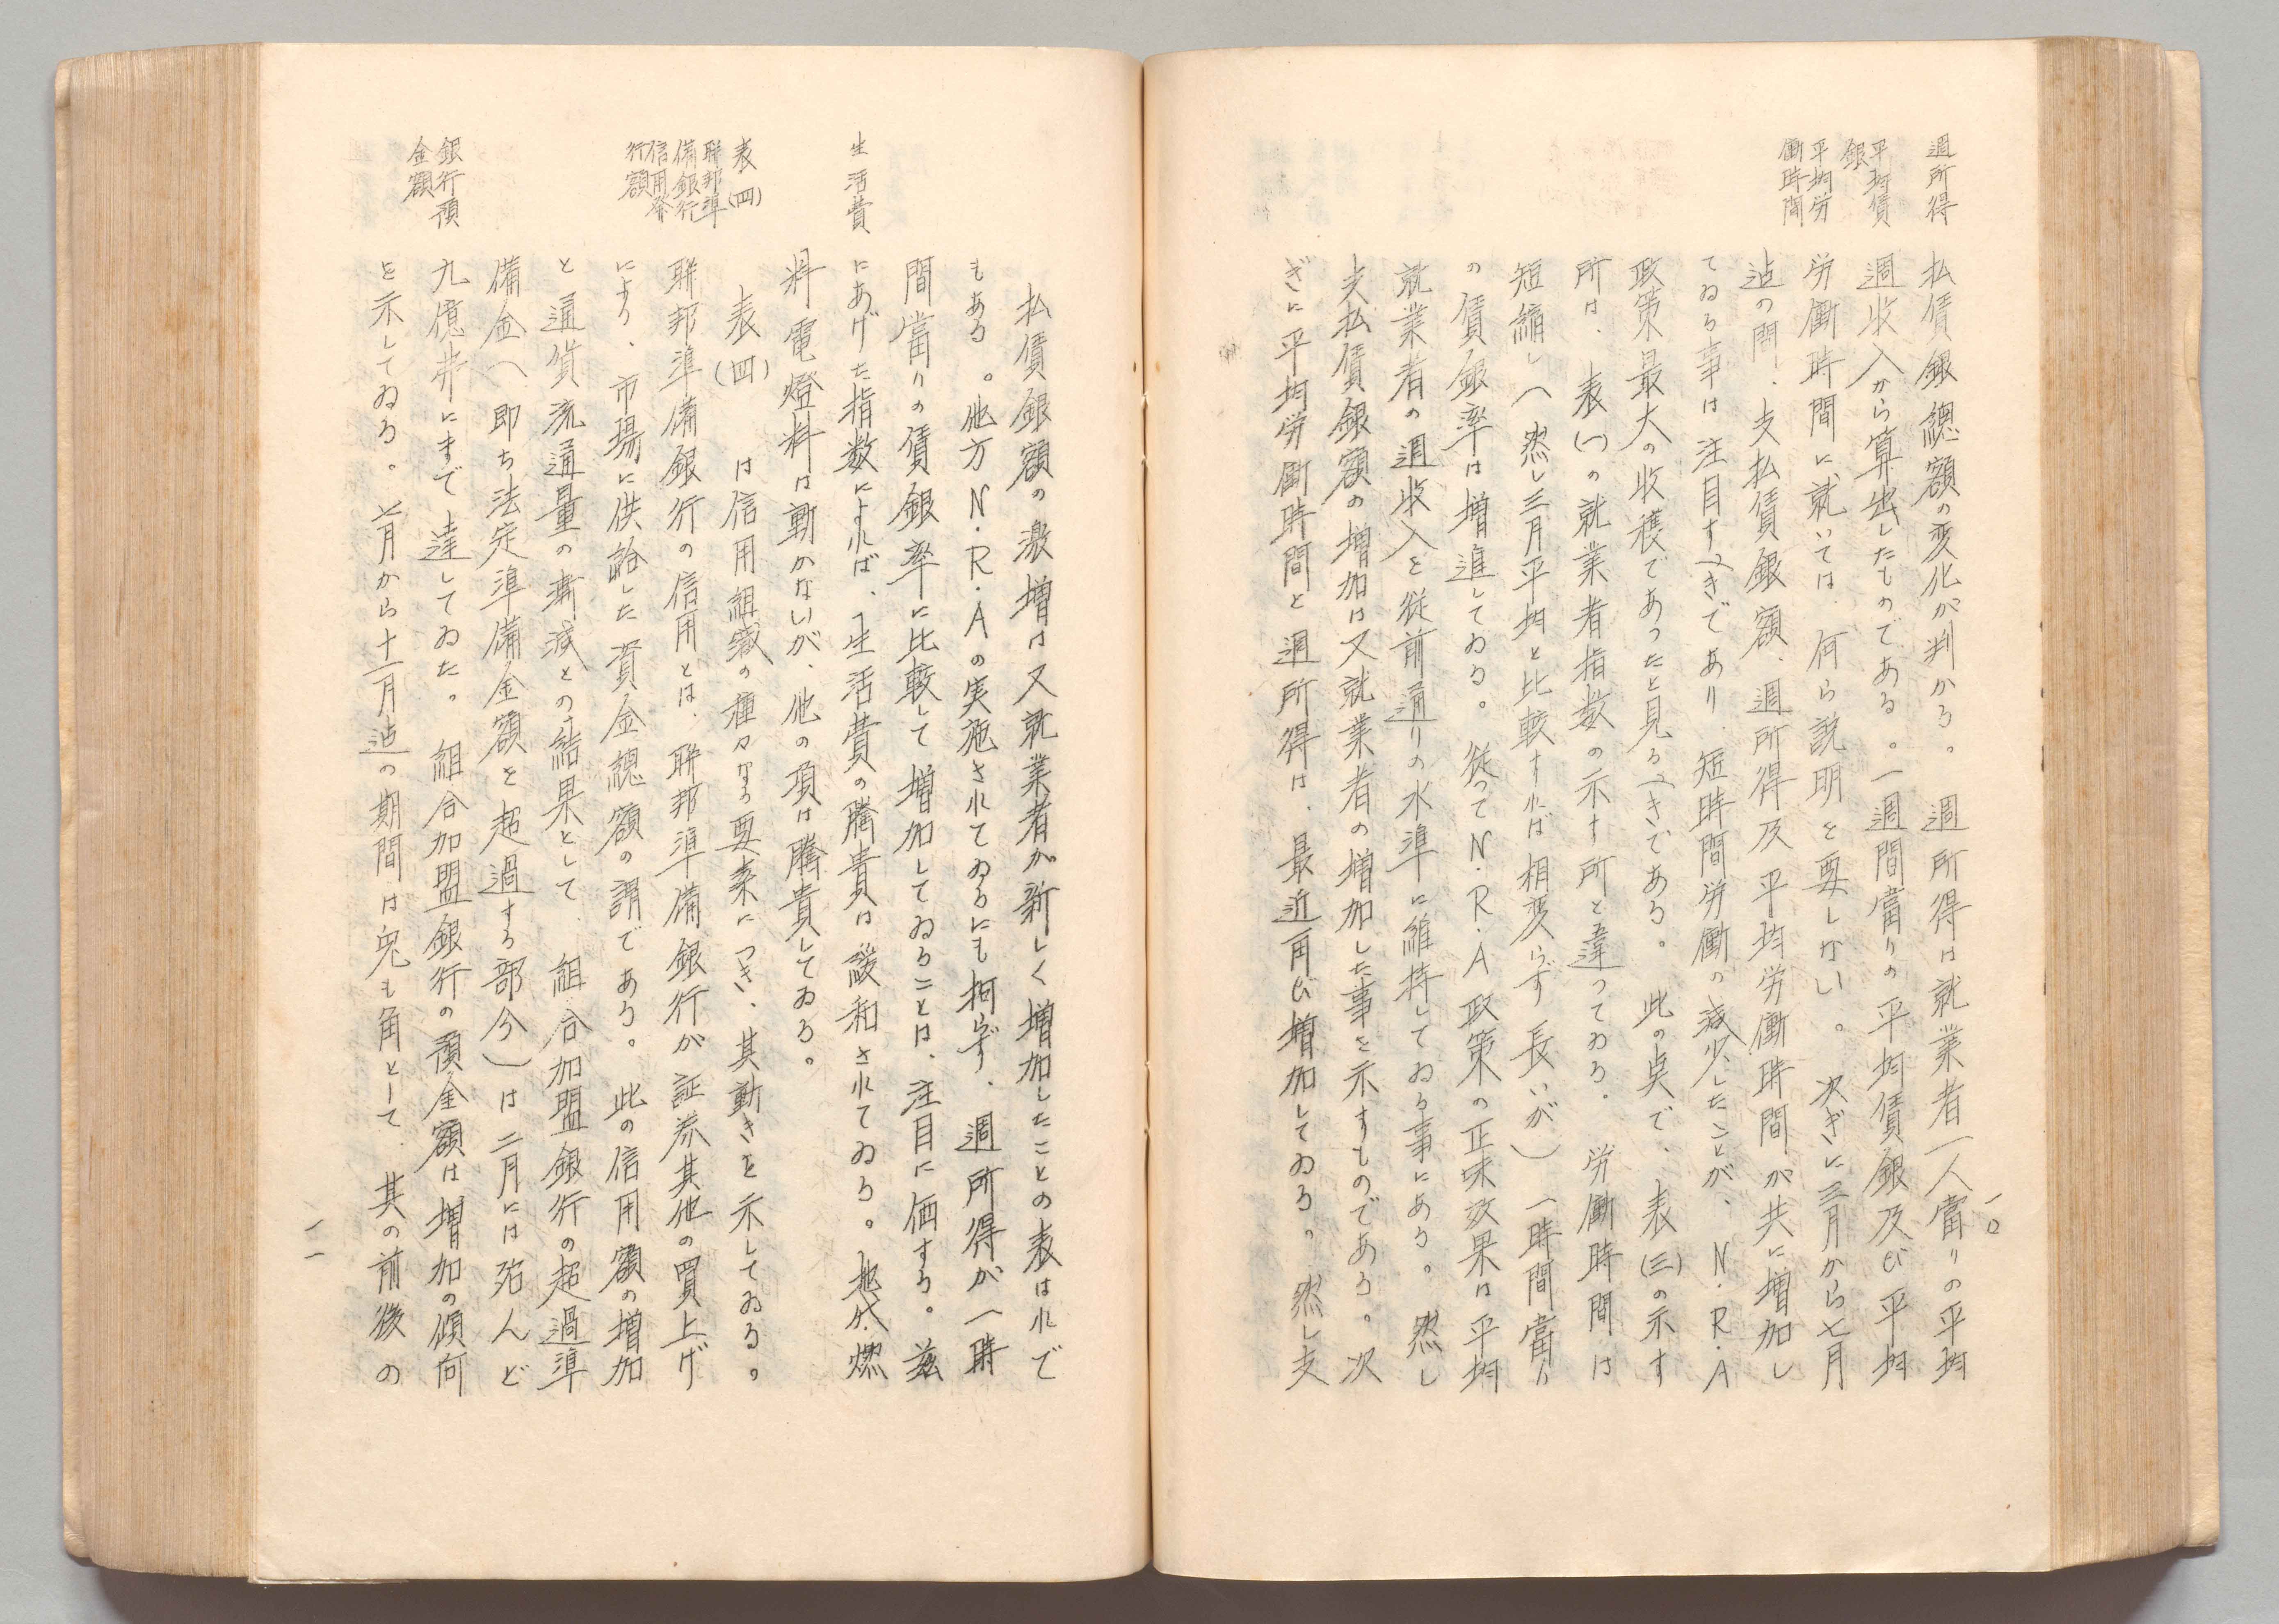 週所得
平均賃
銀
平均労
働時間
払賃銀總額の変化が判かる。週所得は就業者一人當りの平均
週收入から算出したものである。一週間當りの平均賃銀及び平均
労働時間に就いては、何ら説明を要しない。次ぎに三月から七月
迠の間、支払賃銀額、週所得及平均労働時間が共に増加し
てゐる事は注目すべきであり、短時間労働の減少したことが、N.R.A
政策最大の收穫であったと見るべきである。此の奌で、表(三)の示す
所は、表(一)の就業者指数の示す所と違ってゐる。労働時間は
短縮し(然し三月平均と比較すれば相変らず長いが)一時間當り
の賃銀率は増進してゐる。従ってN.R.A政策の正味效果は平均
就業者の週收入を従前通りの水準に維持してゐる事にある。然し
支払賃銀額の増加は又就業者の増加した事を示すものである。次
ぎに平均労働時間と週所得は、最近再び増加してゐる。然し支
一〇
生活費
表(四)
聯邦準
備銀行
信用発
行額
銀行預
金額
払賃銀額の激増は又就業者が新しく増加したことの表はれで
もある。他方N.R.Aの実施されてゐるにも拘らず、週所得が一時
間當りの賃銀率に比較して増加してゐることは、注目に価する。茲
にあげた指数によれば、生活費の騰貴は緩和されてゐる。地代、燃
料電燈料は動かないが、他の項は騰貴してゐる。
表(四)は信用組織の種々なる要素につき、其動きを示してゐる。
聯邦準備銀行の信用とは、聯邦準備銀行が証券其他の買上げ
により、市場に供給した資金總額の謂である。此の信用額の増加
と通貨流通量の漸減との結果として、組合加盟銀行の超過準
備金(即ち法定準備金額を超過する部分)は二月には殆んど
九億弗にまで達してゐた。組合加盟銀行の預金額は増加の傾向
を示してゐる。七月から十一月迠の期間は兎も角として、其の前後の
一一